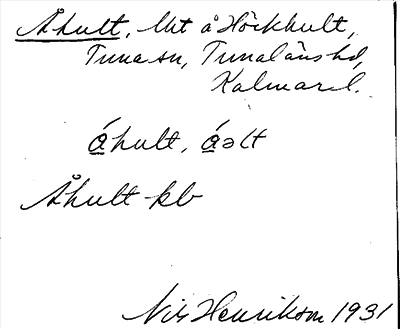 Åhult, lht å Höckhult,
Tuna sn, Tunaläns hd,
Kalmar l.
á̱hult, á̱əlt
Åhult kb
Nils Henrikson 1931